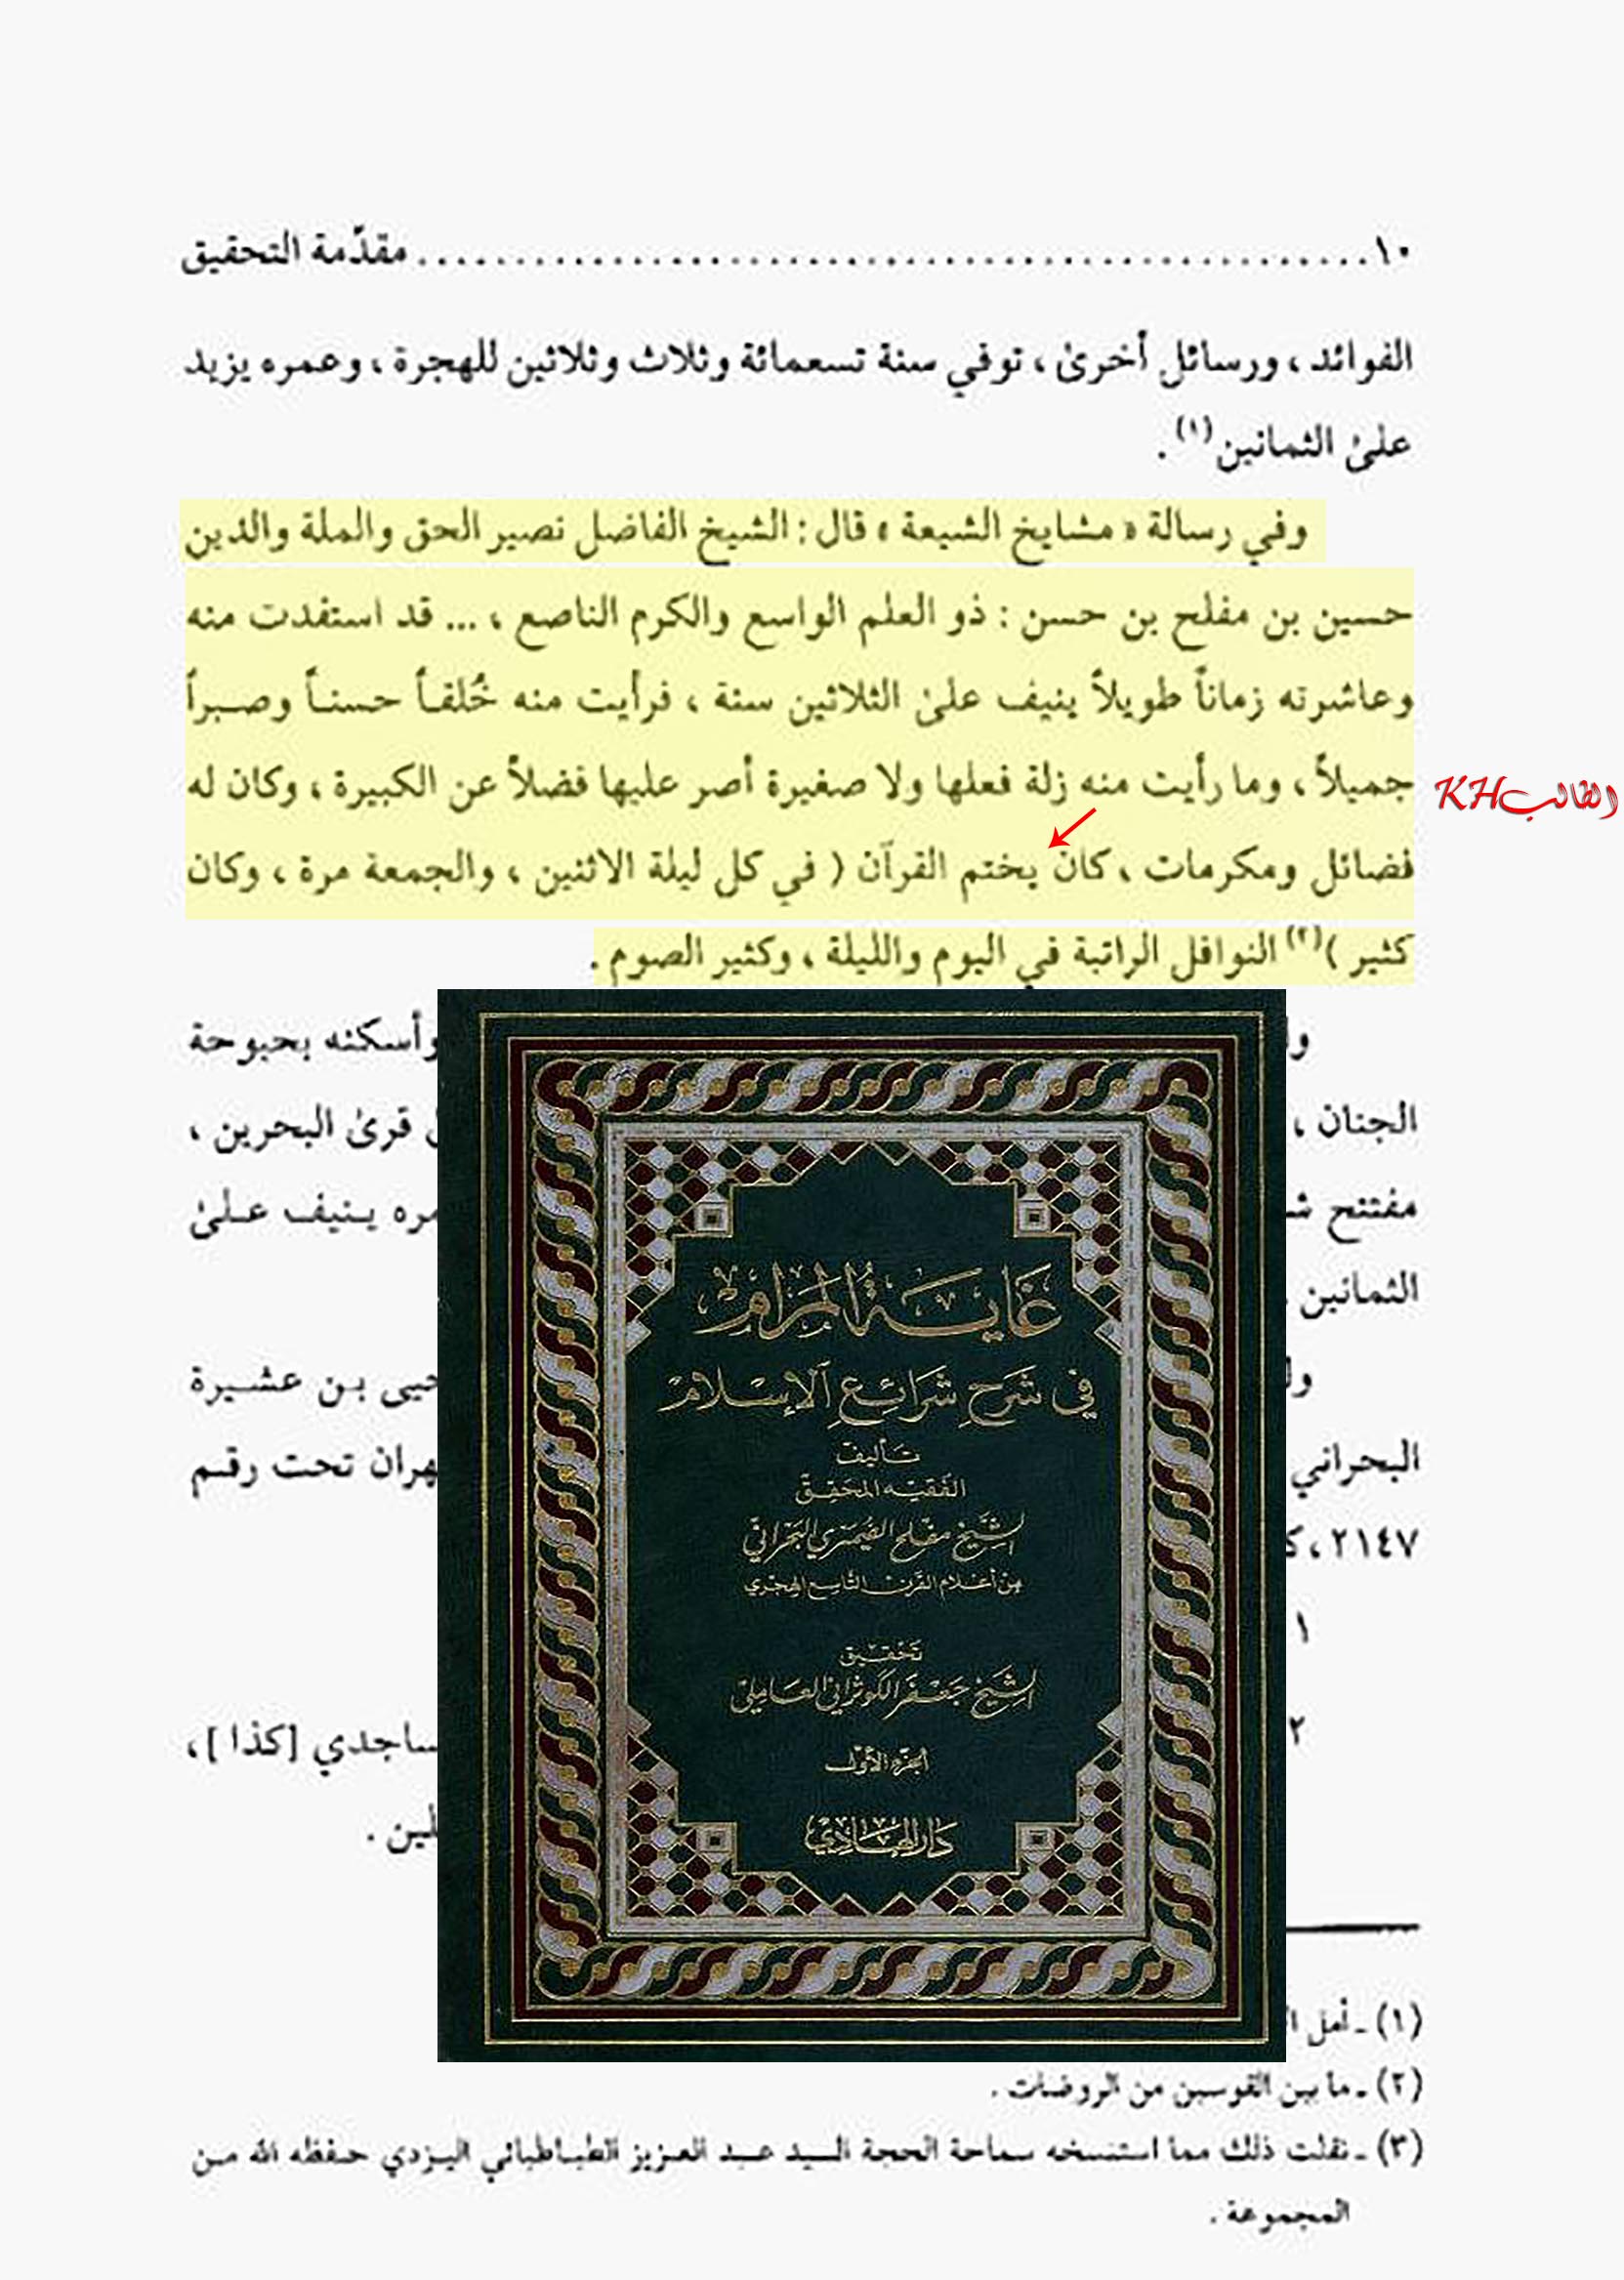 ١٠ ........................................................ مقدّمة التحقيق
الفوائد ، ورسائل أخرىٰ ، توفي سنة تسعمائة وثلاث وثلاثين للهجرة ، وعمره يزيد
علىٰ الثمانين(١) .
وفي رسالة « مشايخ الشيعة » قال : الشيخ الفاضل نصير الحق والملة والدين
حسين بن مفلح بن حسن : ذو العلم الواسع والكرم الناصع ، ... قد استفدت منه
وعاشرته زماناً طويلاً ينيف علىٰ الثلاثين سنة ، فرأيت منه خُلقـاً حسنـاً وصـبراً
جميلاً ، وما رأيت منه زلة فعلها ولا صغيرة أصر عليها فضلاً عن الكبيرة ، وكان له
الطالب KH
فضائل ومكرمات ، كان يختم القرآن ( في كل ليلة الاثنين ، والجمعة مرة ، وكان
كثير )(٢) النوافل الراتبة في اليوم والليلة ، وكثير الصوم .
وأسكنه بحبوحة
الجنان ، قرىٰ البحرين ،
مفتتح ينيف علىٰ
الثمانين .
بن عشيرة
البحراني تحت رقم
٢١٤٧ ،
١
٢ [كذا ] ،
غاية المرام
في شرح شرائع الإسلام
تأليف
الفقيه المحقق
الشيخ مفلح الصيمري البحراني
من أعلام القرن التاسع الهجري
تحقيق
الشيخ جعفر الكوثراني العاملي
الجزء الأول
دار الهادي
(١) ـ أمل
(٢) ـ ما بين القوسين من الروضات .
(٣) ـ نقلت ذلك مما استنسخه سماحة الحجة السيد عبد العزيز الطباطبائي اليزدي حفظه الله من
المجموعة .